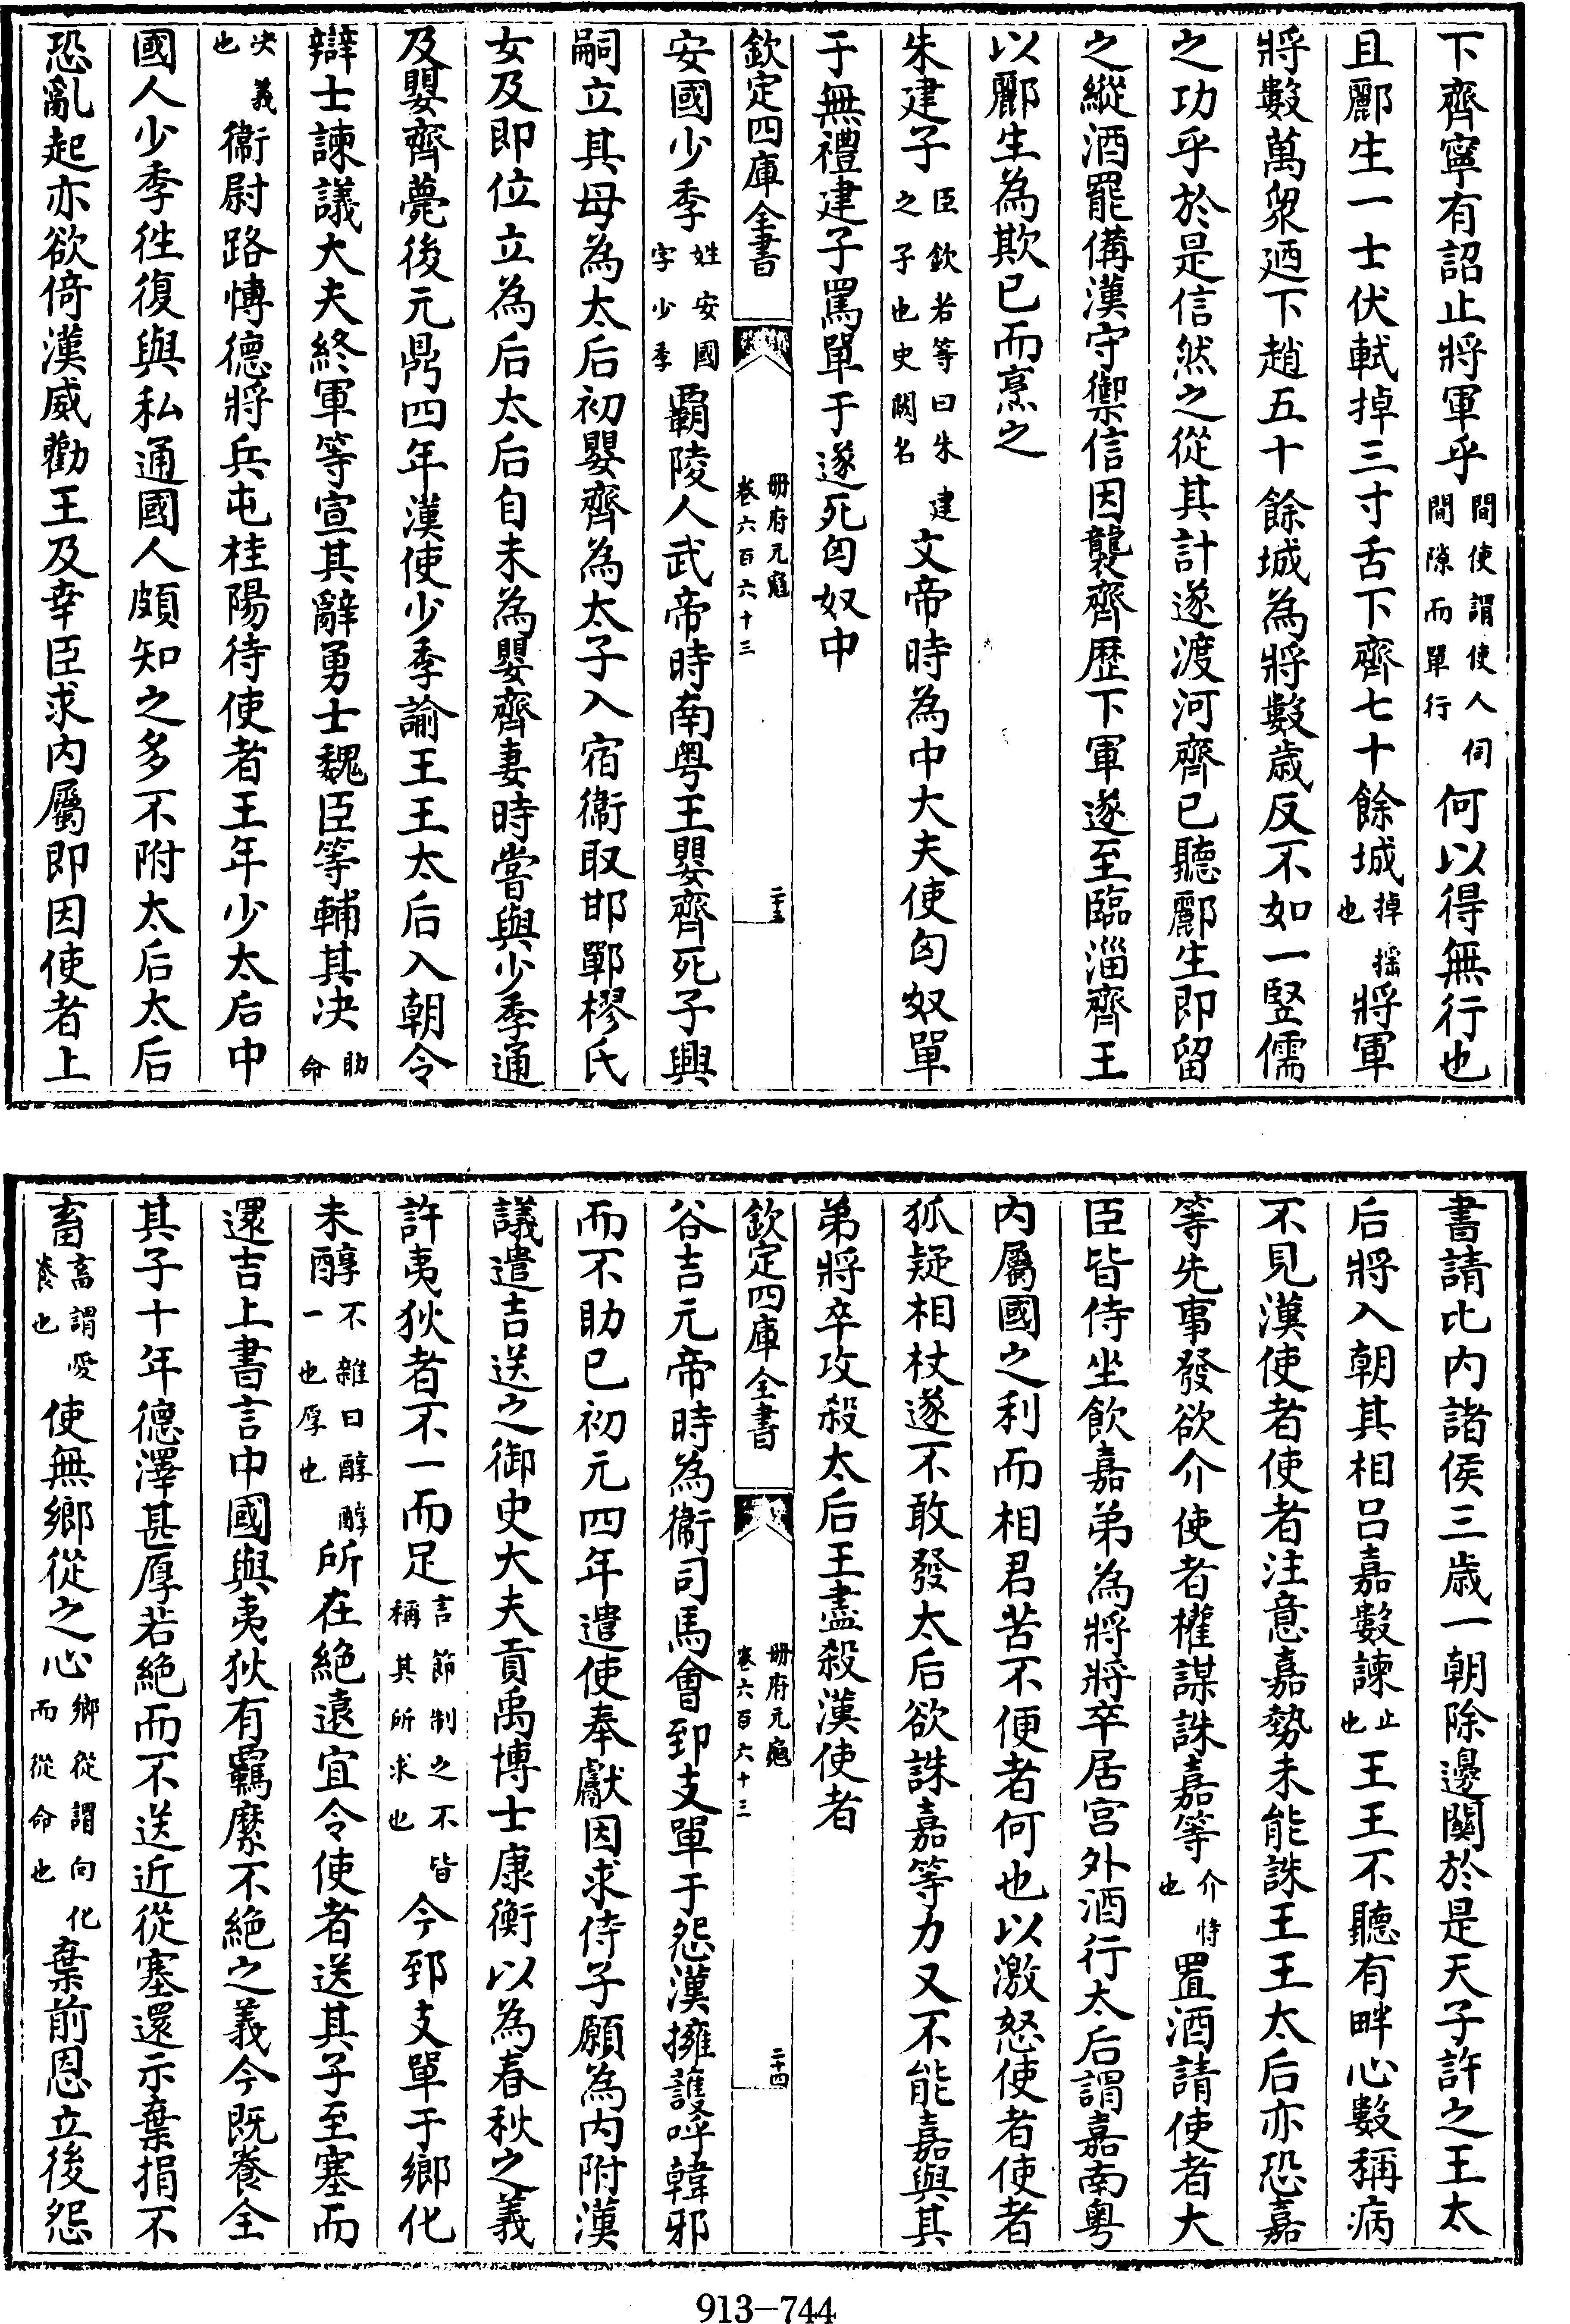 下齊寧有詔止將軍乎間使謂使人伺間隙而單行何以得無行也
且酈生一士伏軾掉三寸舌下齊七十餘城掉搖也將軍
將數萬衆廼下趙五十餘城為將數歲反不如一竪儒
之功乎於是信然之從其計遂渡河齊已聽酈生即留
之縱酒罷備漢守禦信因襲齊歷下軍遂至臨淄齊王
以酈生為欺已而烹之
朱建子臣欽若等曰朱建之子也史闕名文帝時為中大夫使匈奴單
于無禮建子罵單于遂死匈奴中
欽定四庫全書
册府元龜
卷六百六十三
二十三
安國少季姓安國字少季霸陵人武帝時南粤王嬰齊死子興
嗣立其母為太后初嬰齊為太子入宿衞取邯鄲樛氏
女及即位立為后太后自未為嬰齊妻時嘗與少季通
及嬰齊薨後元鼎四年漢使少季諭王王太后入朝令
辯士諫議大夫終軍等宣其辭勇士魏臣等輔其决助命
决義也衞尉路博德將兵屯桂陽待使者王年少太后中
國人少季徃復與私通國人頗知之多不附太后太后
恐亂起亦欲倚漢威勸王及幸臣求内屬即因使者上
書請比内諸侯三歲一朝除邊關於是天子許之王太
后將入朝其相吕嘉數諫止也王王不聽有畔心數稱病
不見漢使者使者注意嘉勢未能誅王王太后亦恐嘉
等先事發欲介使者權謀誅嘉等介恃也置酒請使者大
臣皆侍坐飲嘉弟為將將卒居宫外酒行太后謂嘉南粤
内屬國之利而相君苦不便者何也以激怒使者使者
狐疑相杖遂不敢發太后欲誅嘉等力又不能嘉與其
弟將卒攻殺太后王盡殺漢使者
欽定四庫全書
册府元龜
卷六百六十三
二十四
谷吉元帝時為衞司馬會郅支單于怨漢擁護呼韓邪
而不助已初元四年遣使奉獻因求侍子願為内附漢
議遣吉送之御史大夫貢禹博士康衡以為春秋之義
許夷狄者不一而足言節制之不皆稱其所求也今郅支單于鄉化
未醇不雜曰醇醇一也厚也所在絶遠宜令使者送其子至塞而
還吉上書言中國與夷狄有羈縻不絶之義今既養全
其子十年德澤甚厚若絶而不送近從塞還示棄捐不
畜畜謂愛養也使無鄉從之心鄉從謂向化而從命也棄前恩立後怨
913-744